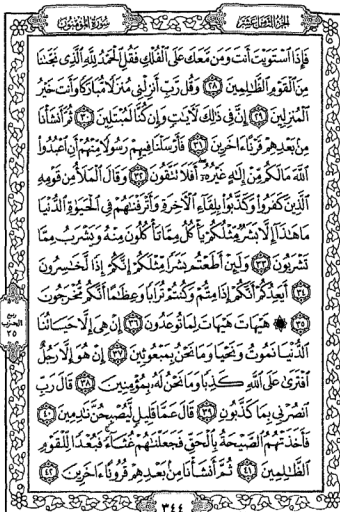 سورة المؤمنون
الجزء الثامن عشر
فَإِذَا ٱسْتَوَيْتَ أَنتَ وَمَن مَّعَكَ عَلَى ٱلْفُلْكِ فَقُلِ ٱلْحَمْدُ لِلَّهِ ٱلَّذِى نَجَّىٰنَا
مِنَ ٱلْقَوْمِ ٱلظَّٰلِمِينَ ٢٨ وَقُل رَّبِّ أَنزِلْنِى مُنزَلًا مُّبَارَكًا وَأَنتَ خَيْرُ
ٱلْمُنزِلِينَ ٢٩ إِنَّ فِى ذَٰلِكَ لَءَايَٰتٍ وَإِن كُنَّا لَمُبْتَلِينَ ٣٠ ثُمَّ أَنشَأْنَا
مِنۢ بَعْدِهِمْ قَرْنًا ءَاخَرِينَ ٣١ فَأَرْسَلْنَا فِيهِمْ رَسُولًا مِّنْهُمْ أَنِ ٱعْبُدُوا۟
ٱللَّهَ مَا لَكُم مِّنْ إِلَٰهٍ غَيْرُهُۥٓ أَفَلَا تَتَّقُونَ ٣٢ وَقَالَ ٱلْمَلَأُ مِن قَوْمِهِ
ٱلَّذِينَ كَفَرُوا۟ وَكَذَّبُوا۟ بِلِقَآءِ ٱلْءَاخِرَةِ وَأَتْرَفْنَٰهُمْ فِى ٱلْحَيَوٰةِ ٱلدُّنْيَا
مَا هَٰذَآ إِلَّا بَشَرٌ مِّثْلُكُمْ يَأْكُلُ مِمَّا تَأْكُلُونَ مِنْهُ وَيَشْرَبُ مِمَّا
تَشْرَبُونَ ٣٣ وَلَئِنْ أَطَعْتُم بَشَرًا مِّثْلَكُمْ إِنَّكُمْ إِذًا لَّخَٰسِرُونَ
٣٤ أَيَعِدُكُمْ أَنَّكُمْ إِذَا مِتُّمْ وَكُنتُمْ تُرَابًا وَعِظَٰمًا أَنَّكُم مُّخْرَجُونَ
٣٥ ۞ هَيْهَاتَ هَيْهَاتَ لِمَا تُوعَدُونَ ٣٦ إِنْ هِىَ إِلَّا حَيَاتُنَا
ٱلدُّنْيَا نَمُوتُ وَنَحْيَا وَمَا نَحْنُ بِمَبْعُوثِينَ ٣٧ إِنْ هُوَ إِلَّا رَجُلٌ
ٱفْتَرَىٰ عَلَى ٱللَّهِ كَذِبًا وَمَا نَحْنُ لَهُۥ بِمُؤْمِنِينَ ٣٨ قَالَ رَبِّ
ٱنصُرْنِى بِمَا كَذَّبُونِ ٣٩ قَالَ عَمَّا قَلِيلٍ لَّيُصْبِحُنَّ نَٰدِمِينَ ٤٠
فَأَخَذَتْهُمُ ٱلصَّيْحَةُ بِٱلْحَقِّ فَجَعَلْنَٰهُمْ غُثَآءً فَبُعْدًا لِّلْقَوْمِ
ٱلظَّٰلِمِينَ ٤١ ثُمَّ أَنشَأْنَا مِنۢ بَعْدِهِمْ قُرُونًا ءَاخَرِينَ ٤٢
ربع
الحزب
٣٥
٣٤٤